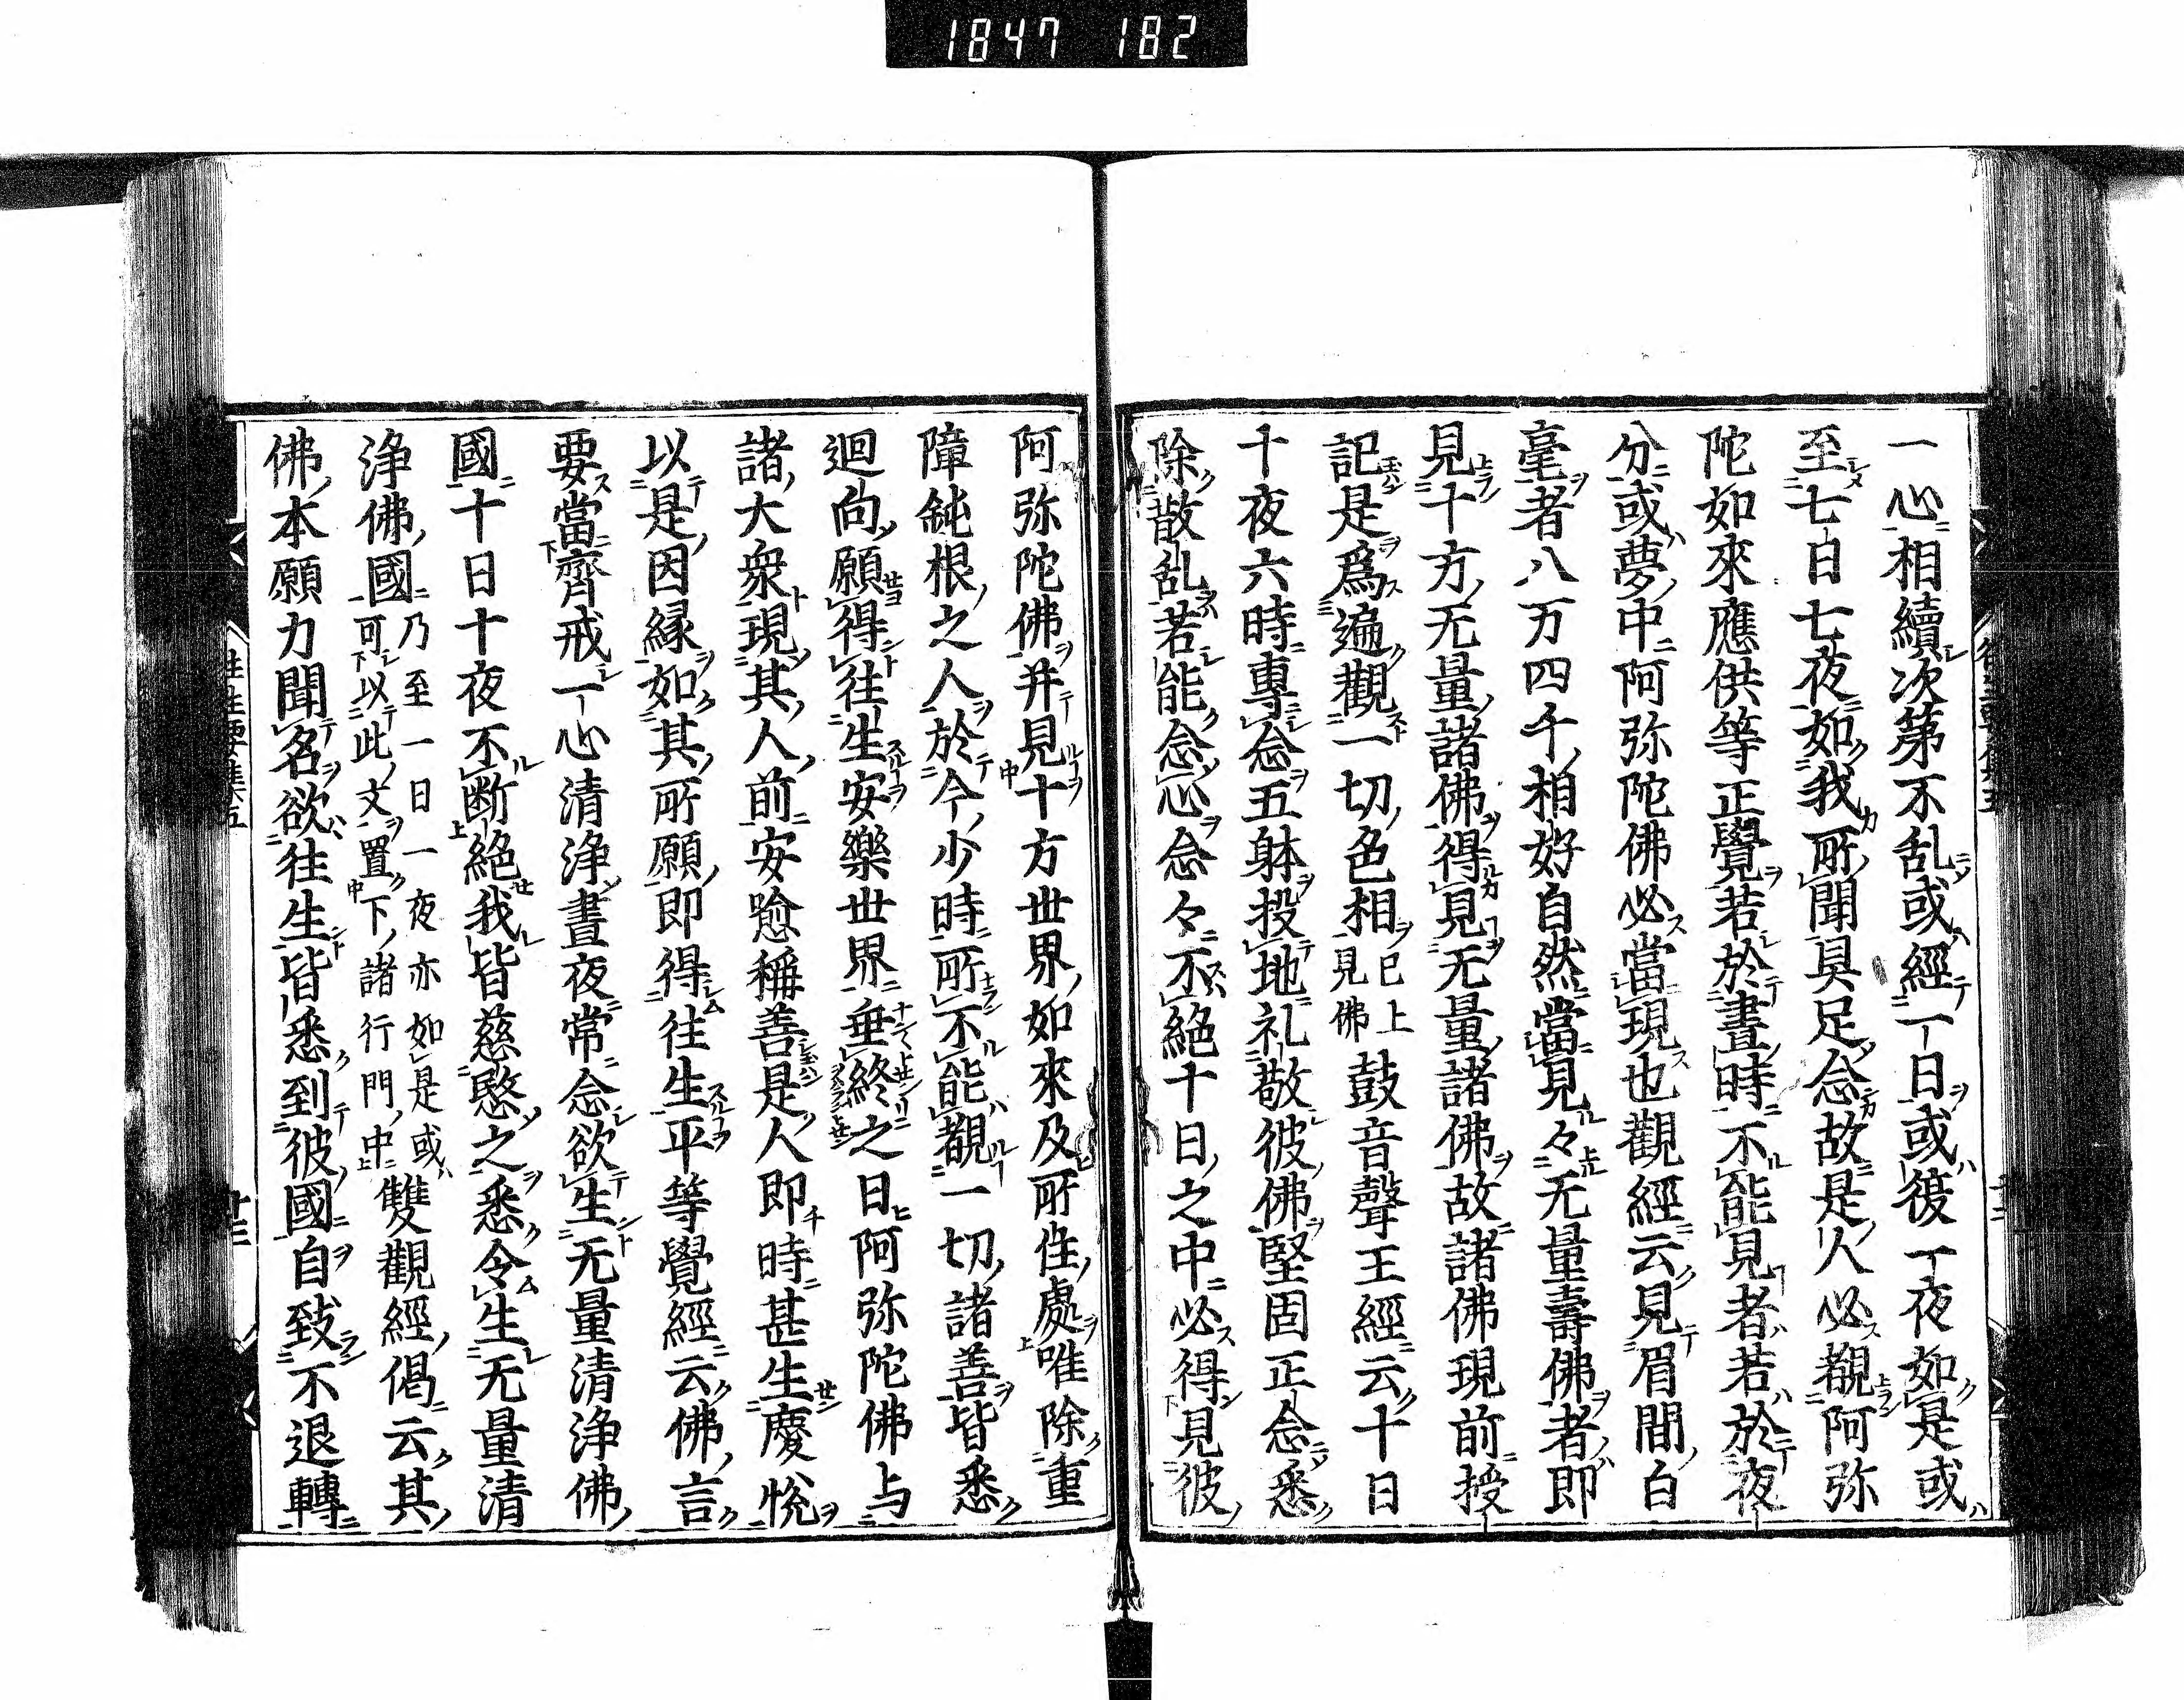 1847 182
一心相續次第不乱或經一日或復一夜如是或
至七日七夜如我所聞具足念故是人必覩阿弥
陀如來應供等正覺若於晝時不能見者若於夜
分或夢中阿弥陀佛必當現也觀經云見眉間白
毫者八万四千相好自然當見々无量壽佛者即
見十方无量諸佛得見无量諸佛故諸佛現前授
記是爲遍觀一切色相已上見佛鼓音聲王經云十日
十夜六時專念五躰投地礼敬彼佛堅固正念悉
除散乱若能念心念々不絕十日之中必得見彼
阿弥陀佛并見十方世界如來及所住處唯除重
障鈍根之人於今少時所不能覩一切諸善皆悉
迴向願得往生安樂世界垂終之日阿弥陀佛与
諸大衆現其人前安愈稱善是人即時甚生慶悅
以是因縁如其所願即得往生平等覺經云佛言
要當齊戒一心清淨晝夜常念欲生无量清浄佛
國十日十夜不断絕我皆慈愍之悉令生无量清
浄佛國乃至一日一夜亦如是或可以此文置下諸行門中雙觀經偈云其
佛本願力聞名欲往生皆悉到彼國自致不退轉
往生要集五